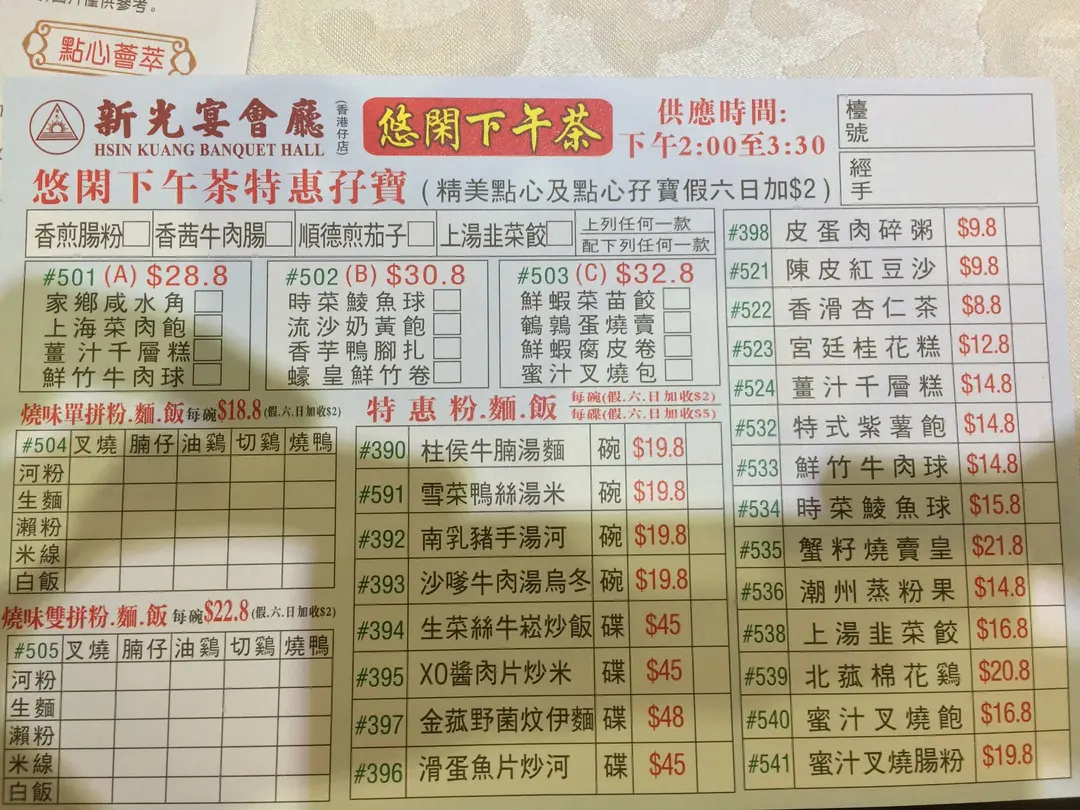 點心薈萃
新光宴會廳
(香港仔店)
HSIN KUANG BANQUET HALL
悠閑下午茶
供應時間:
下午2:00至3:30
檯號
經手
悠閑下午茶特惠孖寶 (精美點心及點心孖寶假六日加$2)
香煎腸粉 香茜牛肉腸 順德煎茄子 上湯韭菜餃
上列任何一款
配下列任何一款
#501 (A) $28.8
家鄉咸水角
上海菜肉飽
薑汁千層糕
鮮竹牛肉球
#502 (B) $30.8
時菜鯪魚球
流沙奶黃飽
香芋鴨腳扎
蠔皇鮮竹卷
#503 (C) $32.8
鮮蝦菜苗餃
鵪鶉蛋燒賣
鮮蝦腐皮卷
蜜汁叉燒包
燒味單拼粉.麵.飯 每碗$18.8 (假.六.日加收$2)
#504 叉燒 腩仔 油鷄 切鷄 燒鴨
河粉
生麵
瀨粉
米線
白飯
燒味雙拼粉.麵.飯 每碗$22.8 (假.六.日加收$2)
#505 叉燒 腩仔 油鷄 切鷄 燒鴨
河粉
生麵
瀨粉
米線
白飯
特惠粉.麵.飯
每碗(假.六.日加收$2)
每碟(假.六.日加收$5)
#390 柱侯牛腩湯麵 碗 $19.8
#591 雪菜鴨絲湯米 碗 $19.8
#392 南乳豬手湯河 碗 $19.8
#393 沙嗲牛肉湯烏冬 碗 $19.8
#394 生菜絲牛崧炒飯 碟 $45
#395 XO醬肉片炒米 碟 $45
#397 金菰野菌炆伊麵 碟 $48
#396 滑蛋魚片炒河 碟 $45
#398 皮蛋肉碎粥 $9.8
#521 陳皮紅豆沙 $9.8
#522 香滑杏仁茶 $8.8
#523 宮廷桂花糕 $12.8
#524 薑汁千層糕 $14.8
#532 特式紫薯飽 $14.8
#533 鮮竹牛肉球 $14.8
#534 時菜鯪魚球 $15.8
#535 蟹籽燒賣皇 $21.8
#536 潮州蒸粉果 $14.8
#538 上湯韭菜餃 $16.8
#539 北菰棉花鷄 $20.8
#540 蜜汁叉燒飽 $16.8
#541 蜜汁叉燒腸粉 $19.8